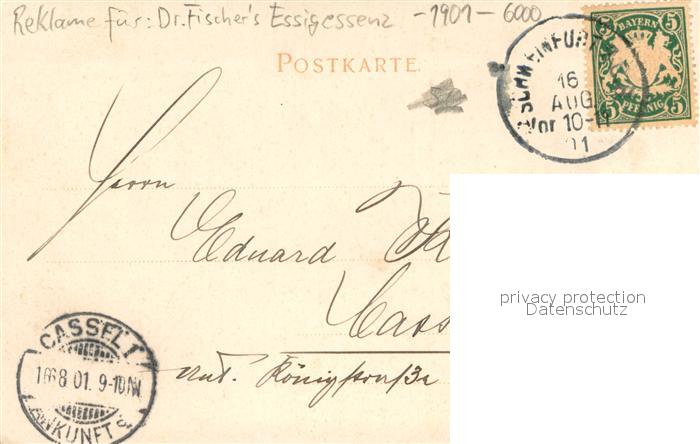 Reklame für: Dr. Fischer's Essigessenz -1901- 6000
POSTKARTE.
SCHWEINFURT
16
AUG
Vor 10-11
01
BAYERN
5 5
5 5
PFENNIG
Herrn
Eduard
Cass
privacy protection
Datenschutz
Unt. Königstraße
CASSEL 1
16 8 01. 9-10N
ANKUNFT